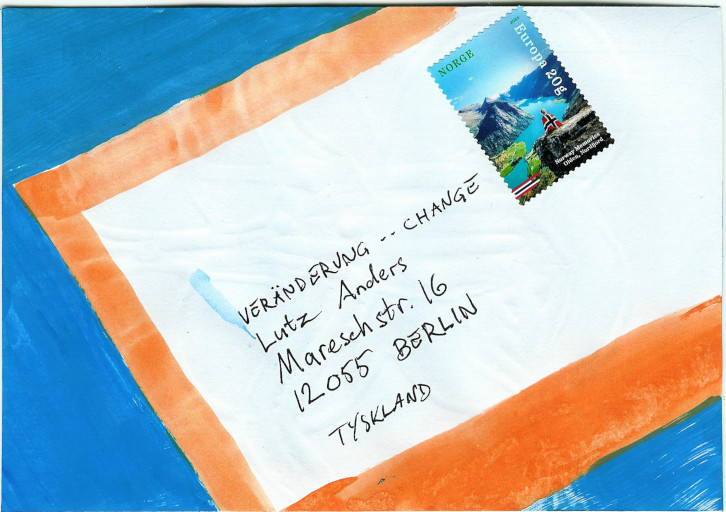 NORGE
Europa 20g
Norway Memories
Olden, Nordfjord
VERÄNDERUNG -- CHANGE
Lutz Anders
Mareschstr. 16
12055 BERLIN
TYSKLAND